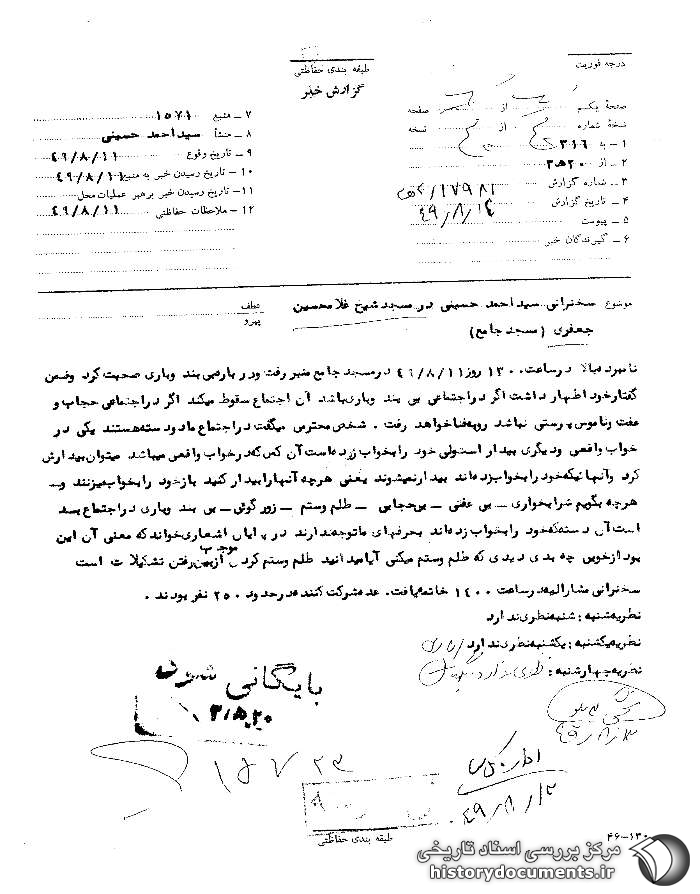 درجه فوریت
طبقه بندی حفاظتی
گزارش خبر
صفحه یکم از صفحه
نسخهٔ شماره از نسخه
۱ – به ۳۱۶
۲ – از ۲۰ ه‍ ۳
۳ – شماره گزارش ۱۷۹۸۲
۴ – تاریخ گزارش ۴۹/۸/۱۴
۵ – پیوست
۶ – گیرندگان خبر
۷ – منبع ۱۵۷۱
۸ – منشأ سیداحمد حسینی
۹ – تاریخ وقوع ۴۹/۸/۱۱
۱۰ – تاریخ رسیدن خبر به منبع ۴۹/۸/۱۱
۱۱ – تاریخ رسیدن خبر برهبر عملیات محل
۱۲ – ملاحظات حفاظتی ۴۹/۸/۱۱
موضوع سخنرانی سید احمد حسینی در مسجد شیخ غلامحسین
جعفری (مسجد جامع)
عطف
پیرو
نامبرده بالا در ساعت ۱۳۰۰ روز ۴۹/۸/۱۱ در مسجد جامع منبر رفت و در باره بی بند وباری صحبت کرد وضمن
گفتار خود اظهار داشت اگر در اجتماعی بی بند وباری باشد آن اجتماع سقوط میکند اگر در اجتماعی حجاب و
عفت وناموس پرستی نباشد رو بفنا خواهد رفت . شخص محترمی میگفت در اجتماع ما دو دسته هستند یکی در
خواب واقعی و دیگری بیدار است ولی خود را بخواب زده است آن کس که در خواب واقعی میباشد میتوان بیدارش
کرد وآنهائیکه خود را بخواب زده اند بیدار نمیشوند یعنی هرچه آنها را بیدار کنید باز خود را بخواب میزنند و
هرچه بگویم شرابخواری – بی عفتی – بی حجابی – ظلم وستم – زورگوئی – بی بند وباری در اجتماع بد
است آن دسته که خود را بخواب زده اند بحرفهای ما توجه ندارند در پایان اشعاری خواند که معنی آن این
بود از خوبی چه بدی دیدی که ظلم وستم میکنی آیا میدانید ظلم وستم کردن موجب ازبین رفتن تشکیلات است
سخنرانی مشارالیه در ساعت ۱۴۰۰ خاتمه یافت . عده شرکت کننده در حدود ۲۵۰ نفر بودند .
نظریه شنبه : شنبه نظری ندارد
نظریه یکشنبه : یکشنبه نظری ندارد
نظریه چهارشنبه : نظری ندارد
بایگانی شود
۳۱۵۲۰
۴۹/۸/۱۳
۱۵۷۲۳
۴۹/۸/۱۲
طبقه بندی حفاظتی
۴۶–۱۳۰
مرکز بررسی اسناد تاریخی
historydocuments.ir